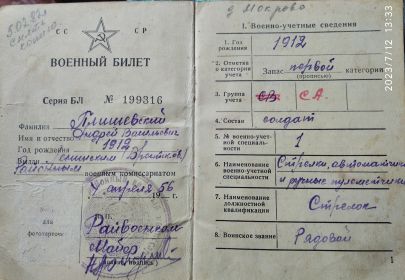 СС СР
ВОЕННЫЙ БИЛЕТ
Серия БЛ № 199316
Фамилия Плишевский
Имя и отчество Андрей Васильевич
Год рождения 1912
Выдан
районным
военным комиссариатом
апреля 56
Райвоенком
Майор
Для
фотокарточки
д Мокрово
I. Военно-учетные сведения
1. Год рождения 1912
2. Отметка о категории учета Запас первой категории
(прописью)
3. Группа учета СА.
4. Состав солдат
5. № военно-учетной специальности 1
6. Наименование военно-учетной специальности Стрелки, автоматчики и ручные пулеметчики
7. Наименование должностной квалификации Стрелок
8. Военное звание Рядовой
1
2023/7/12 13:33